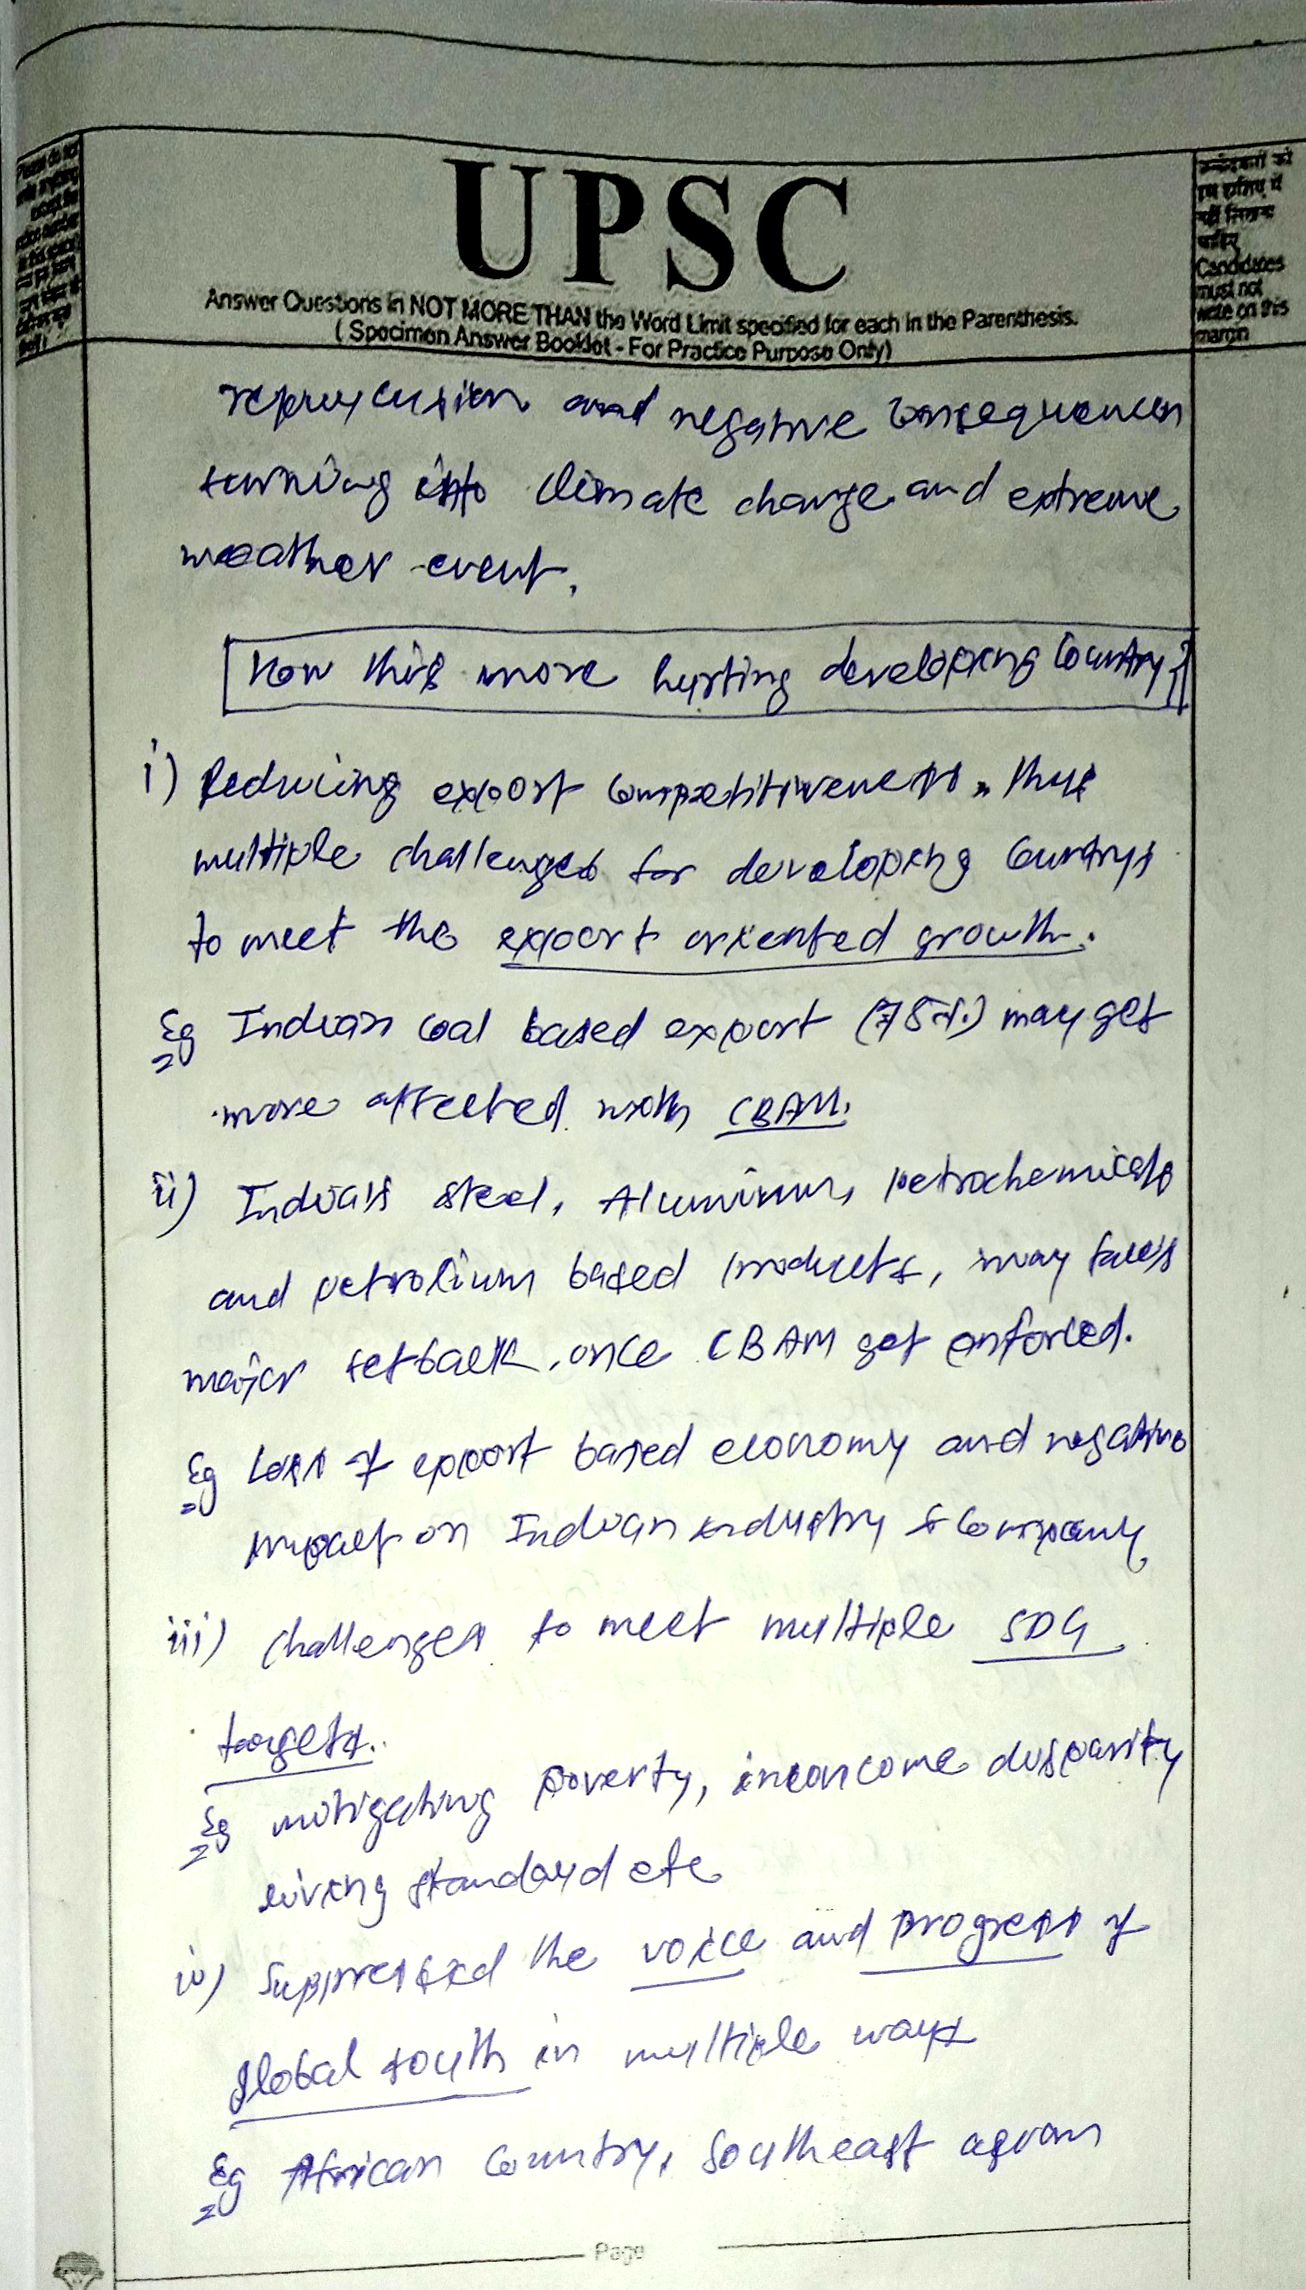 UPSC
Answer Questions in NOT MORE THAN the Word Limit specified for each in the Parenthesis.
( Specimen Answer Booklet - For Practice Purpose Only)
उम्मीदवारों को
इस हाशिए में
नहीं लिखना
चाहिए
Candidates
must not
write on this
margin
and negative consequences
turning into climate change and extreme
weather event.
How this more hurting developing country?
i) Reducing export competitiveness, thus
multiple challenges for developing countrys
to meet the export oriented growth.
Eg Indian coal based export (75%) may get
more affected with CBAM.
ii) India's steel, Aluminium, petrochemicals
and petrolium based products, may faces
major setback, once CBAM get enforced.
Eg Loss of export based economy and negative
impact on Indian industry & Company
iii) Challenges to meet multiple SDG
targets.
Eg mitigating poverty, inconcome disparity
living standard etc
iv) Suppressed the voice and progress of
global south in multiple ways
Eg African country, Southeast asian
Page